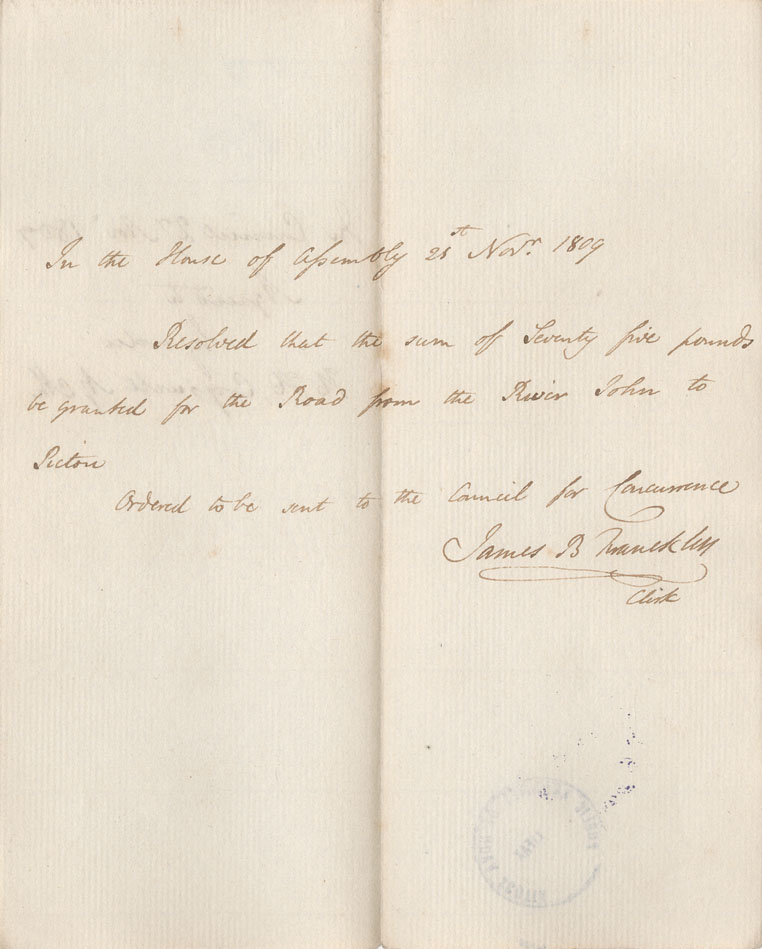 In the House of Assembly 25th Novr. 1809
Resolved that the sum of Seventy five pounds
be granted for the Road from the River John to
Pictou
Ordered to be sent to the Council for Concurrence
James B Francklin
Clerk